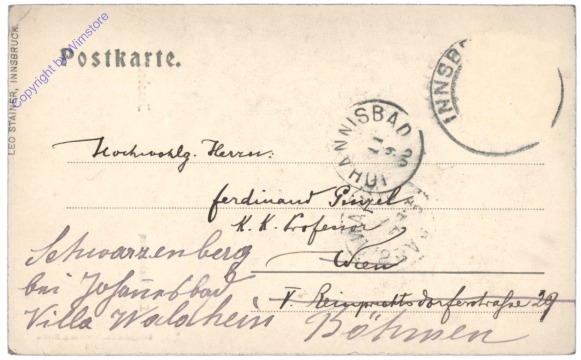 Copyright by Wimstore
LEO STAINER, INNSBRUCK.
Postkarte.
INNSB
JOHANNISBAD
Hochwohlg. Herrn:
Ferdinand
K. K. Professor
Wien
V Reinprechtsdorferstrasse 29
Schwarzenberg
bei Johannesbad
Villa Waldheim Böhmen